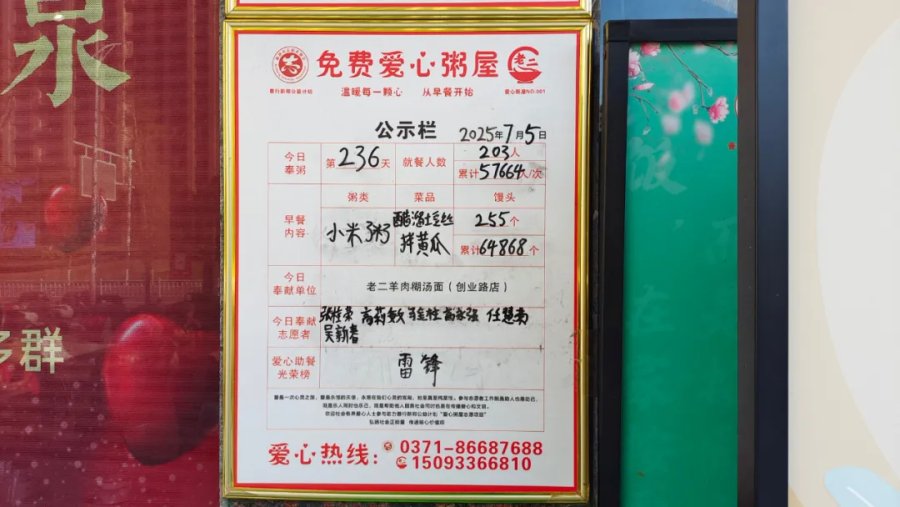 泉
多群
免费爱心粥屋
老二
善行新郑公益计划
温暖每一颗心 从早餐开始
爱心粥屋NO:001
公示栏 2025年7月5日
今日奉粥 第236天 就餐人数 203人
累计57664人/次
粥类 菜品 馒头
早餐内容 小米粥 醋溜土豆丝 255个
拌黄瓜 累计64868个
今日奉献单位 老二羊肉糊汤面(创业路店)
今日奉献志愿者
吴新春
爱心助餐光荣榜 雷锋
弘扬社会正能量 传递爱心价值观
爱心热线: 0371-86687688
15093366810